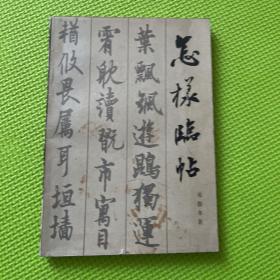 怎樣臨帖
葉飄颻遊鵾獨運
霄躭讀翫市寓目
輶攸畏属耳垣墻